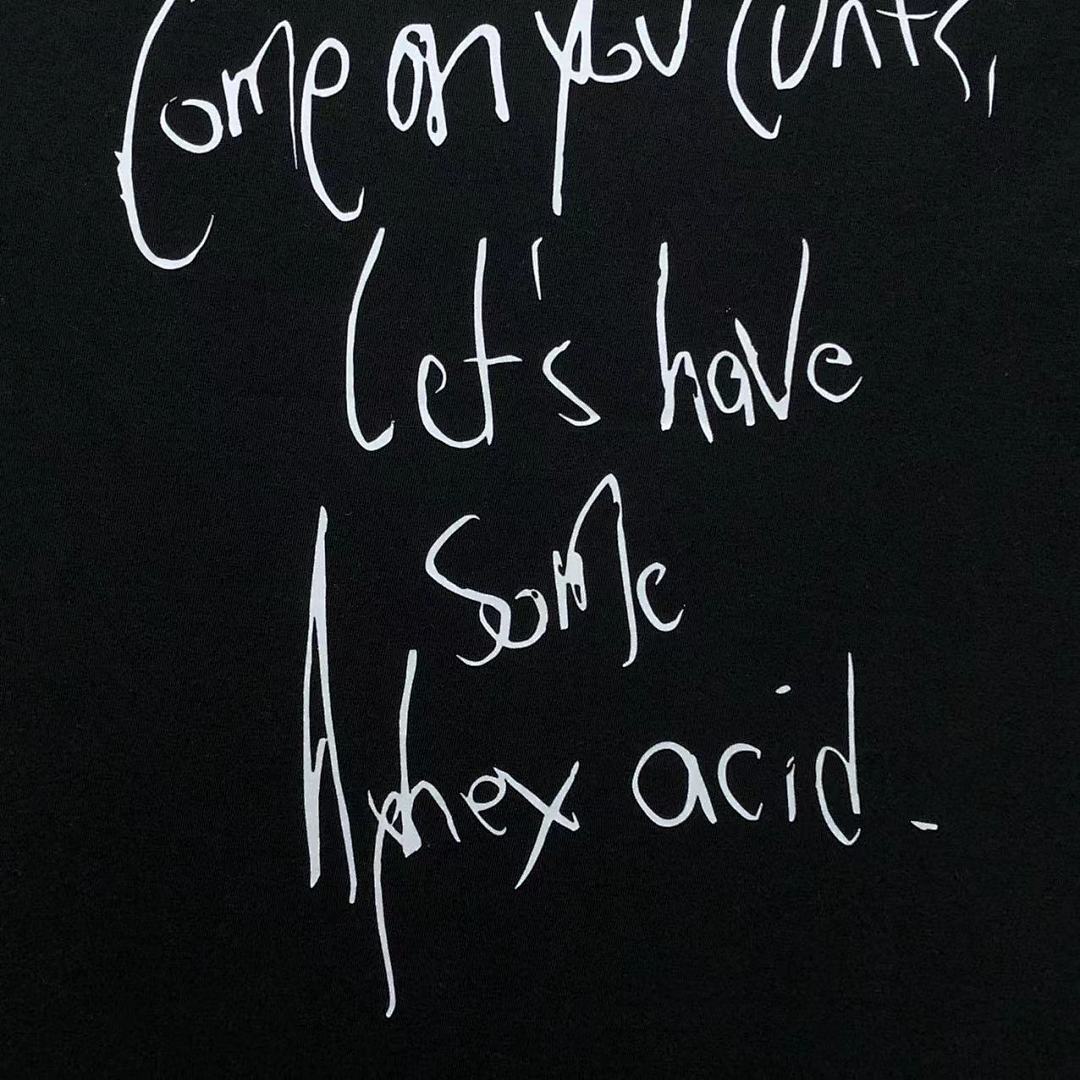 Come on you cunts,
let's have
Some
Aphex acid.